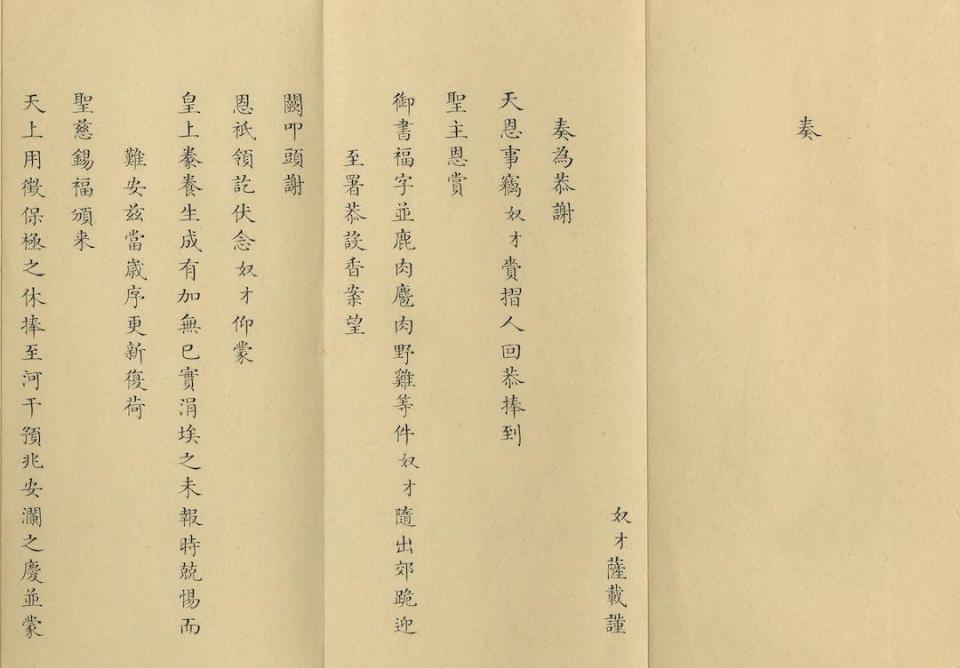 奏
奴才薩載謹
奏為恭謝
天恩事竊奴才賫摺人回恭捧到
聖主恩賞
御書福字並鹿肉麅肉野雞等件奴才隨出郊跪迎
至署恭設香案望
闕叩頭謝
恩祇領訖伏念奴才仰蒙
皇上豢養生成有加無已實涓埃之未報時兢惕而
難安茲當歲序更新復荷
聖慈錫福頒来
天上用徵保極之休捧至河干預兆安瀾之慶並蒙